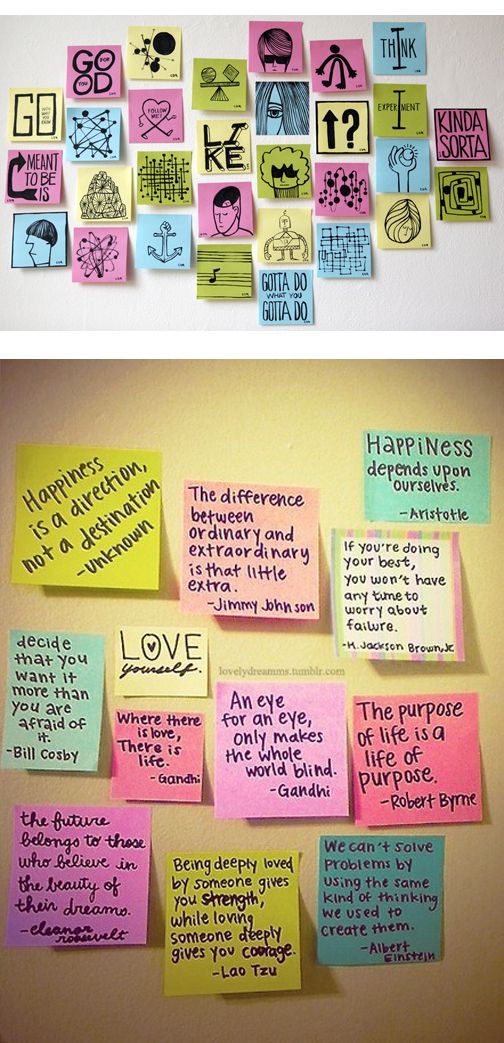 GO
FOR
OD
YOU
THINK
GO
UNTIL
WHAT YOU
YOU KNOW
FOLLOW
ME!
LI
KE
↑?
EXPERIMENT
KINDA
SORTA
MEANT
TO BE
IS
GOTTA DO
WHAT YOU
GOTTA DO
Happiness
is a direction,
not a destination
-unknown
The difference
between
ordinary and
extraordinary
is that little
extra.
-Jimmy Johnson
HAPPINESS
depends upon
ourselves.
-Aristotle
If you're doing
your best,
you won't have
any time to
worry about
failure.
-H. Jackson Brown, Jr.
decide
that you
want it
more than
you are
afraid of
it.
-Bill Cosby
LOVE
yourself.
lovelydreamms.tumblr.com
Where there
is love,
There is
life.
-Gandhi
An eye
for an eye,
only makes
the whole
world blind.
-Gandhi
The purpose
of life is a
life of
purpose.
-Robert Byrne
the future
belongs to those
who believe in
the beauty of
their dreams.
-eleanor
roosevelt
Being deeply loved
by someone gives
you strength,
while loving
someone deeply
gives you courage.
-Lao Tzu
We can't solve
problems by
using the same
kind of thinking
we used to
create them.
-Albert
Einstein